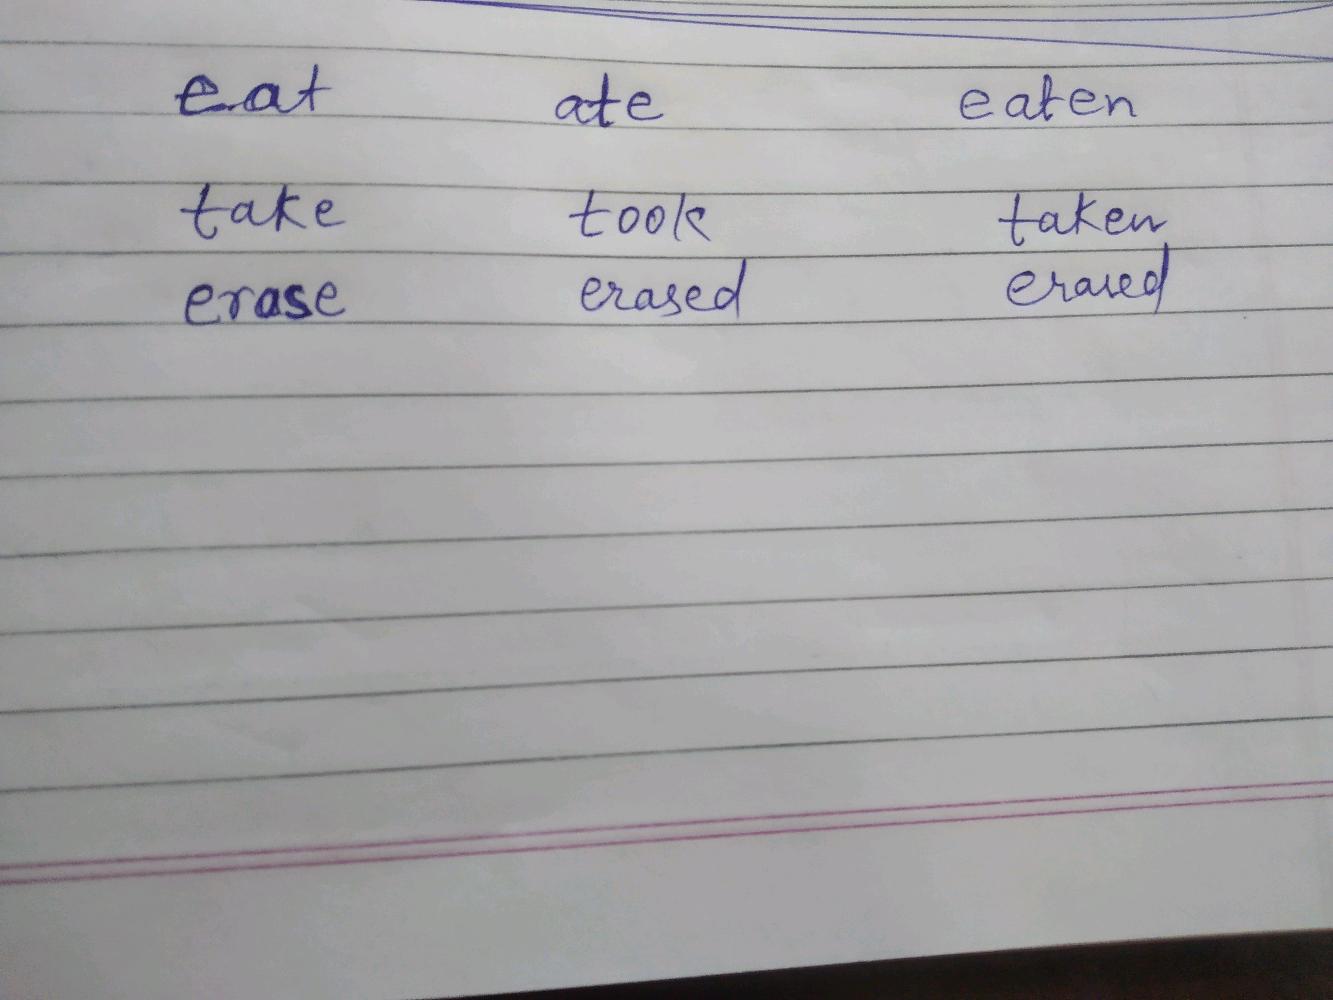 eat ate eaten
take took taken
erase erased erased